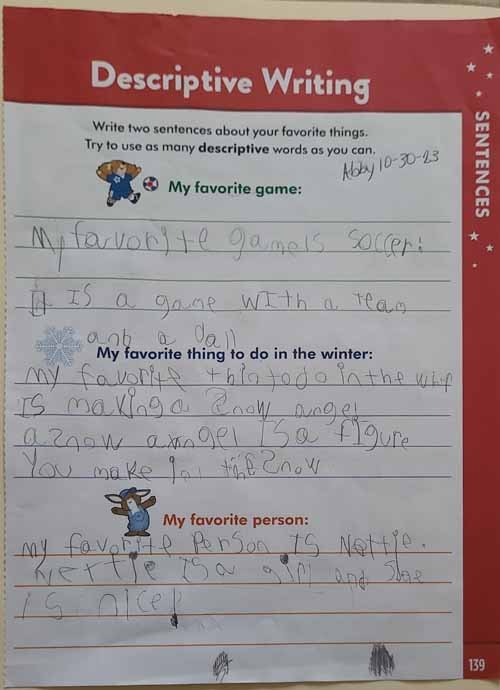 Descriptive Writing
SENTENCES
Write two sentences about your favorite things.
Try to use as many descriptive words as you can.
Abby 10-30-23
My favorite game:
My favorite game is soccer.
It is a game with a team
anb a dall
My favorite thing to do in the winter:
my favorite thin to do in the wint
Is making a snow angel
a snow angel is a figure
You make in the snow
My favorite person:
my favorite person is Nettie.
Nettie is a girl and she
is nice!
139